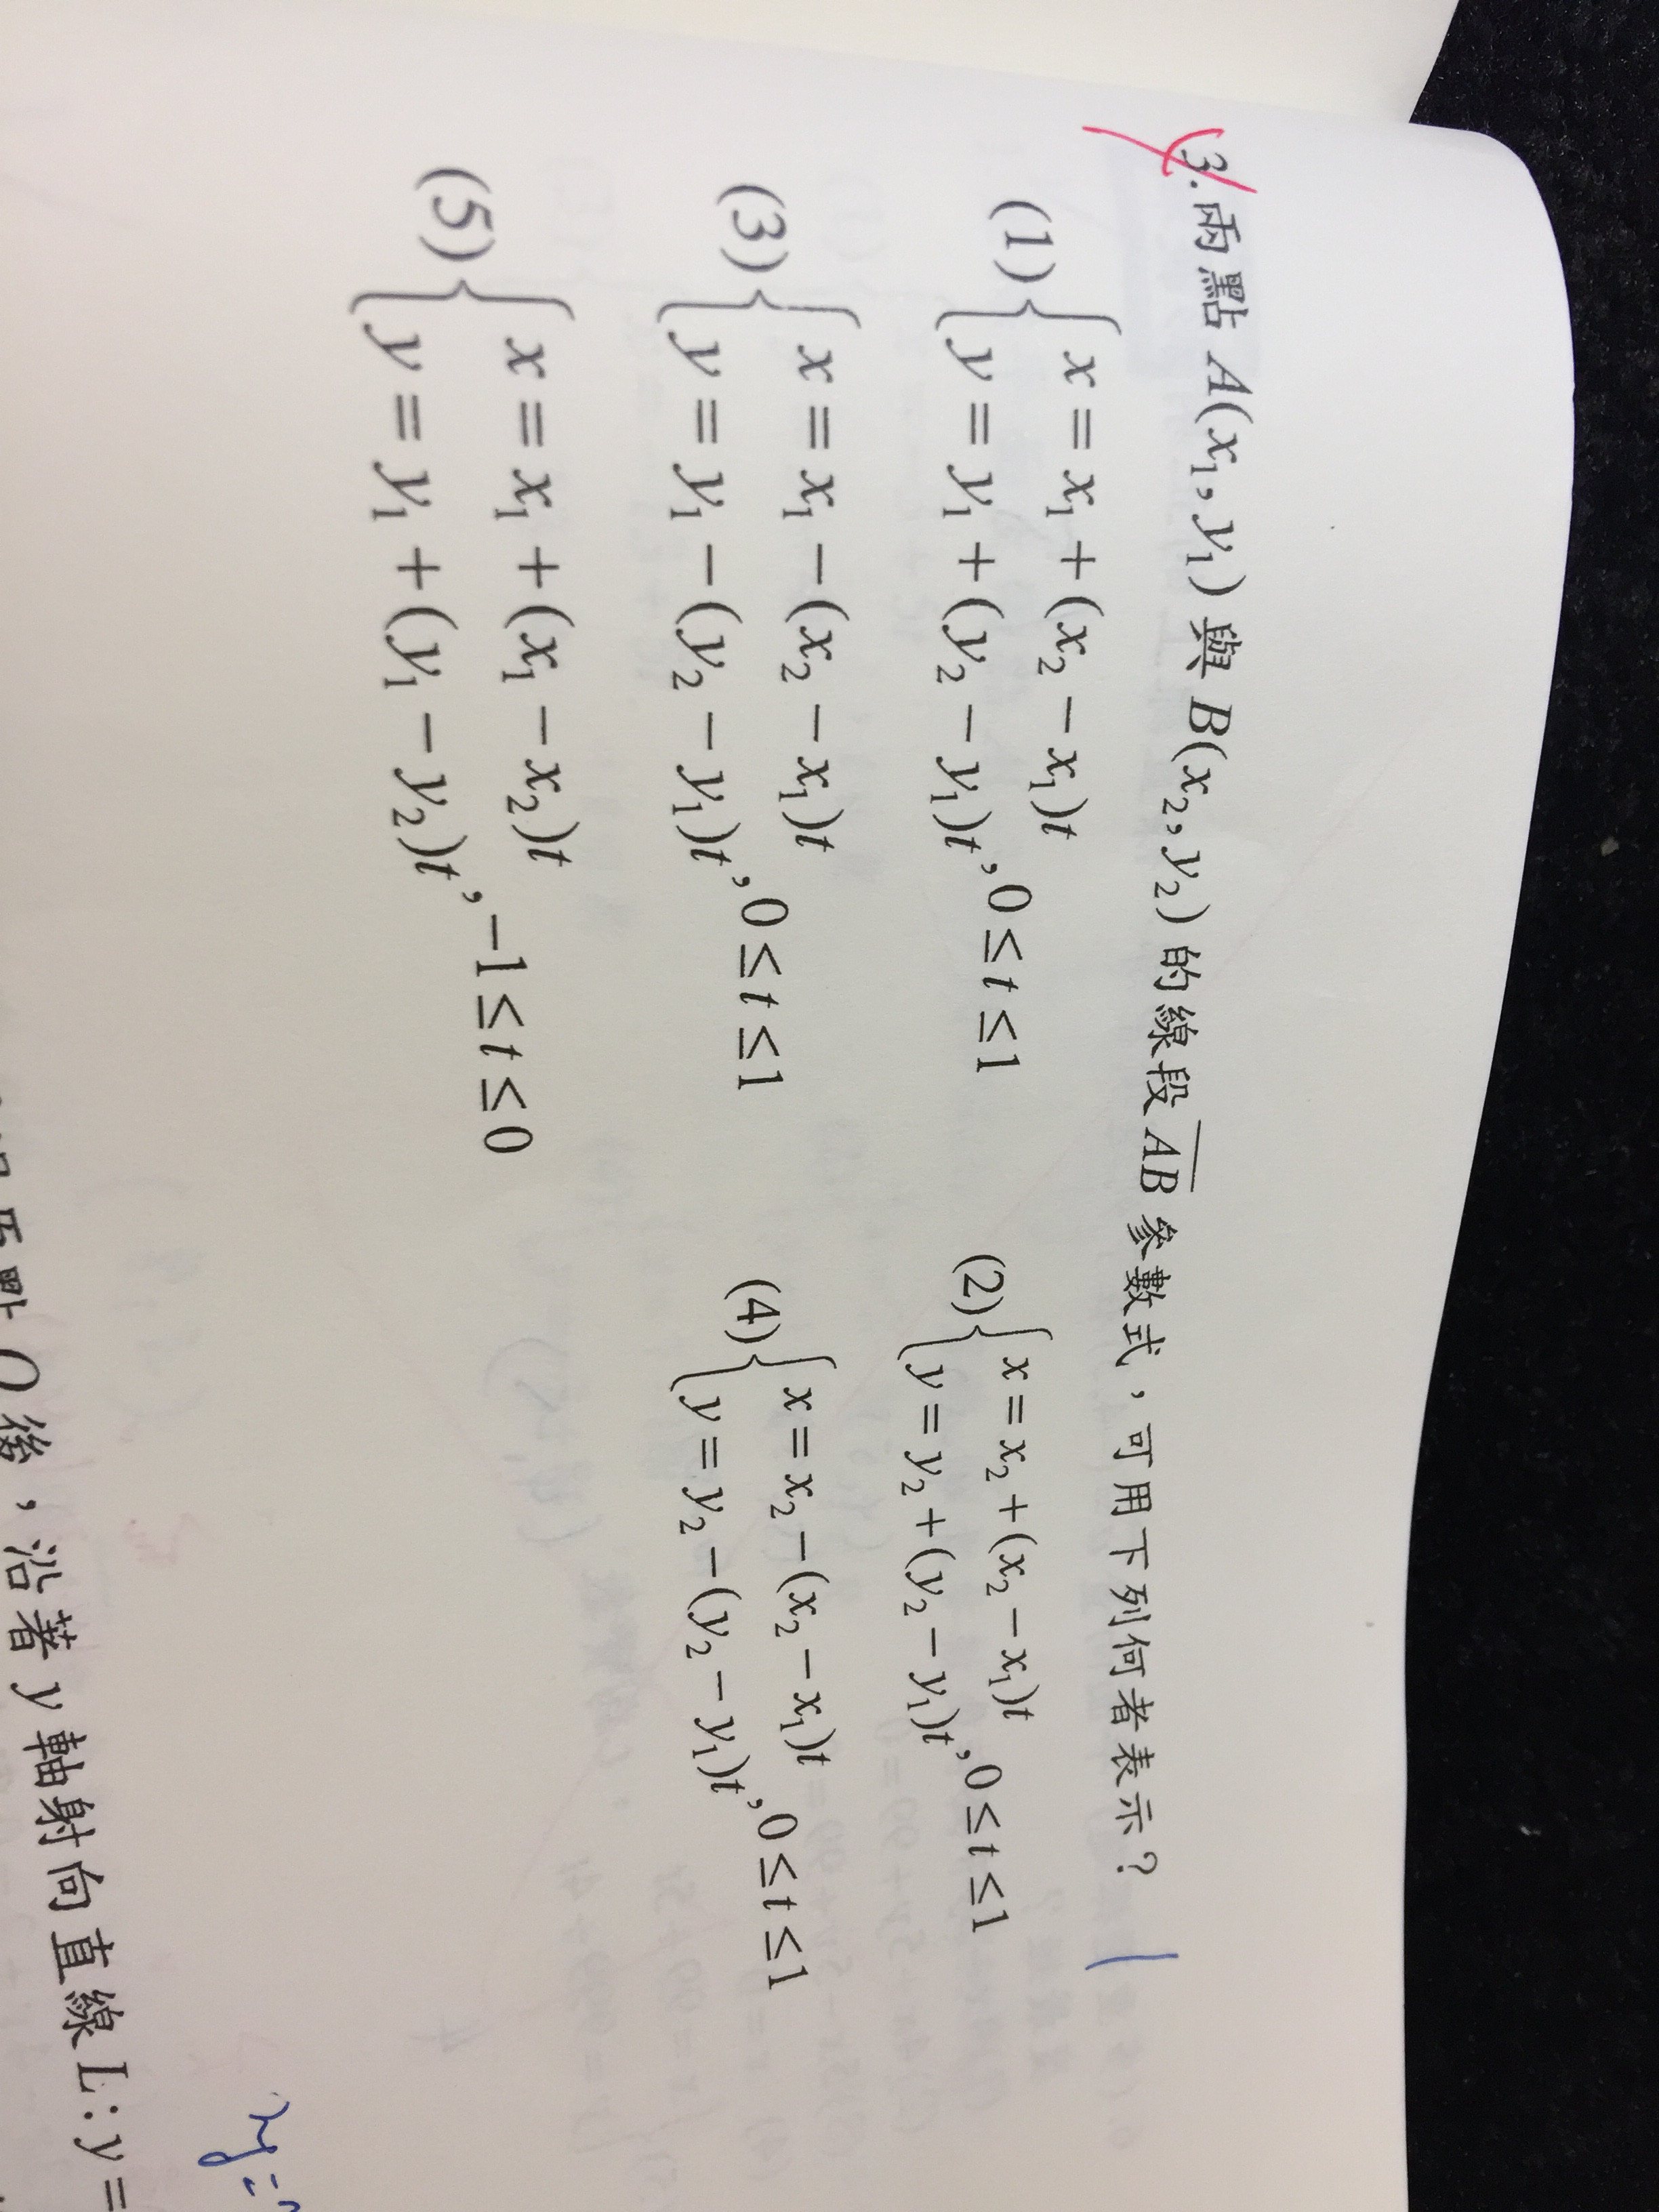 3.兩點 A(x₁,y₁) 與 B(x₂,y₂) 的線段 A̅B̅ 參數式，可用下列何者表示？
(1){x = x₁ + (x₂ − x₁)t
y = y₁ + (y₂ − y₁)t, 0 ≤ t ≤ 1
(2){x = x₂ + (x₂ − x₁)t
y = y₂ + (y₂ − y₁)t, 0 ≤ t ≤ 1
(3){x = x₁ − (x₂ − x₁)t
y = y₁ − (y₂ − y₁)t, 0 ≤ t ≤ 1
(4){x = x₂ − (x₂ − x₁)t
y = y₂ − (y₂ − y₁)t, 0 ≤ t ≤ 1
(5){x = x₁ + (x₁ − x₂)t
y = y₁ + (y₁ − y₂)t, −1 ≤ t ≤ 0
O 後，沿著 y 軸射向直線 L: y =